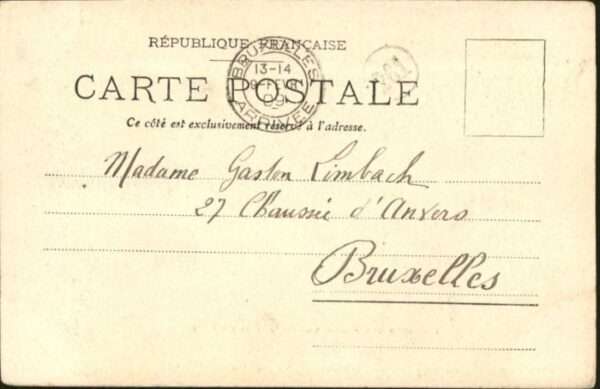 RÉPUBLIQUE FRANÇAISE
BRUXELLES
13-14
FEVR
09
ARRIVEE
CARTE POSTALE
Ce côté est exclusivement réservé à l'adresse.
Madame Gaston Limbach
27 Chaussée d'Anvers
Bruxelles